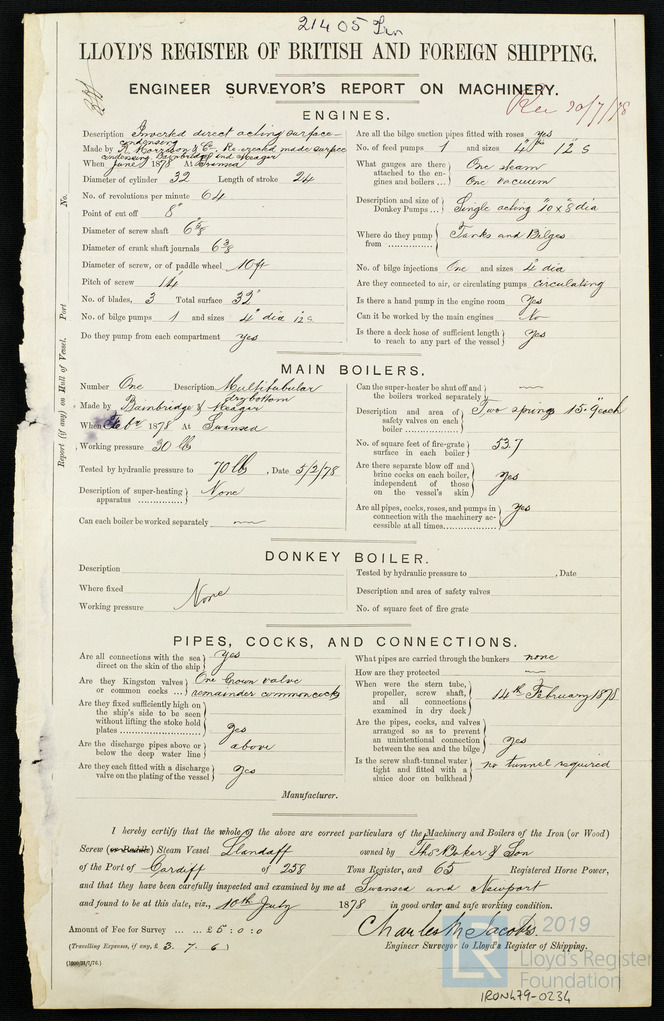 21405 Irn
LLOYD'S REGISTER OF BRITISH AND FOREIGN SHIPPING.
ENGINEER SURVEYOR'S REPORT ON MACHINERY.
Rec 20/7/78
No. Port
Report (if any) on Hull of Vessel.
ENGINES.
Description Inverted direct acting surface-
condensing
Made by Morrison & Co. Re-created made surface
condensing Bainbridge and Meager
When June 1878 At Swansea
Diameter of cylinder 32 Length of stroke 24
No. of revolutions per minute 64
Point of cut off 8"
Diameter of screw shaft 6⅜"
Diameter of crank shaft journals 6⅜
Diameter of screw, or of paddle wheel 10ft
Pitch of screw 14'
No. of blades, 3 Total surface 32'
No. of bilge pumps 1 and sizes 4" dia 12 S
Do they pump from each compartment yes
Are all the bilge suction pipes fitted with roses yes
No. of feed pumps 1 and sizes 12" S
What gauges are there attached to the engines and boilers ... One steam
One vacuum
Description and size of Donkey Pumps ... Single acting 10 x 8 dia
Where do they pump from .............. Tanks and Bilges
No. of bilge injections One and sizes 4" dia
Are they connected to air, or circulating pumps circulating
Is there a hand pump in the engine room Yes
Can it be worked by the main engines No
Is there a deck hose of sufficient length to reach to any part of the vessel Yes
MAIN BOILERS.
Number One Description Multitubular
dry bottom
Made by Bainbridge & Meager
When Feb 1878 At Swansea
Working pressure 30 lb
Tested by hydraulic pressure to 70 lb, Date 5/2/78
Description of super-heating apparatus ... None
Can each boiler be worked separately —
Can the super-heater be shut off and the boilers worked separately —
Description and area of safety valves on each boiler ... Two spring 15.9" each
No. of square feet of fire-grate surface in each boiler 53.7
Are there separate blow off and brine cocks on each boiler, independent of those on the vessel's skin yes
Are all pipes, cocks, roses, and pumps in connection with the machinery accessible at all times......... yes
DONKEY BOILER.
Description
Where fixed None
Working pressure
Tested by hydraulic pressure to , Date
Description and area of safety valves
No. of square feet of fire grate
PIPES, COCKS, AND CONNECTIONS.
Are all connections with the sea direct on the skin of the ship yes
Are they Kingston valves or common cocks ... One Crown valve
remainder common cocks
Are they fixed sufficiently high on the ship's side to be seen without lifting the stoke hold plates ... yes
Are the discharge pipes above or below the deep water line above
Are they each fitted with a discharge valve on the plating of the vessel yes
What pipes are carried through the bunkers none
How are they protected —
When were the stern tube, propeller, screw shaft, and all connections examined in dry dock 14th February 1878
Are the pipes, cocks, and valves arranged so as to prevent an unintentional connection between the sea and the bilge yes
Is the screw shaft-tunnel water tight and fitted with a sluice door on bulkhead no tunnel required
Manufacturer.
I hereby certify that the whole of the above are correct particulars of the Machinery and Boilers of the Iron (or Wood)
Screw (or Paddle) Steam Vessel Llandaff owned by Thos Baker & Son
of the Port of Cardiff of 258 Tons Register, and 65 Registered Horse Power,
and that they have been carefully inspected and examined by me at Swansea and Newport
and found to be at this date, viz., 10th July 1878 in good order and safe working condition.
Amount of Fee for Survey ... ... £5:0:0
(Travelling Expenses, if any, £ 3. 7. 6)
Charles M Jacobs
Engineer Surveyor to Lloyd's Register of Shipping.
LR
© 2019
Lloyd's Register
Foundation
IRON479-0234